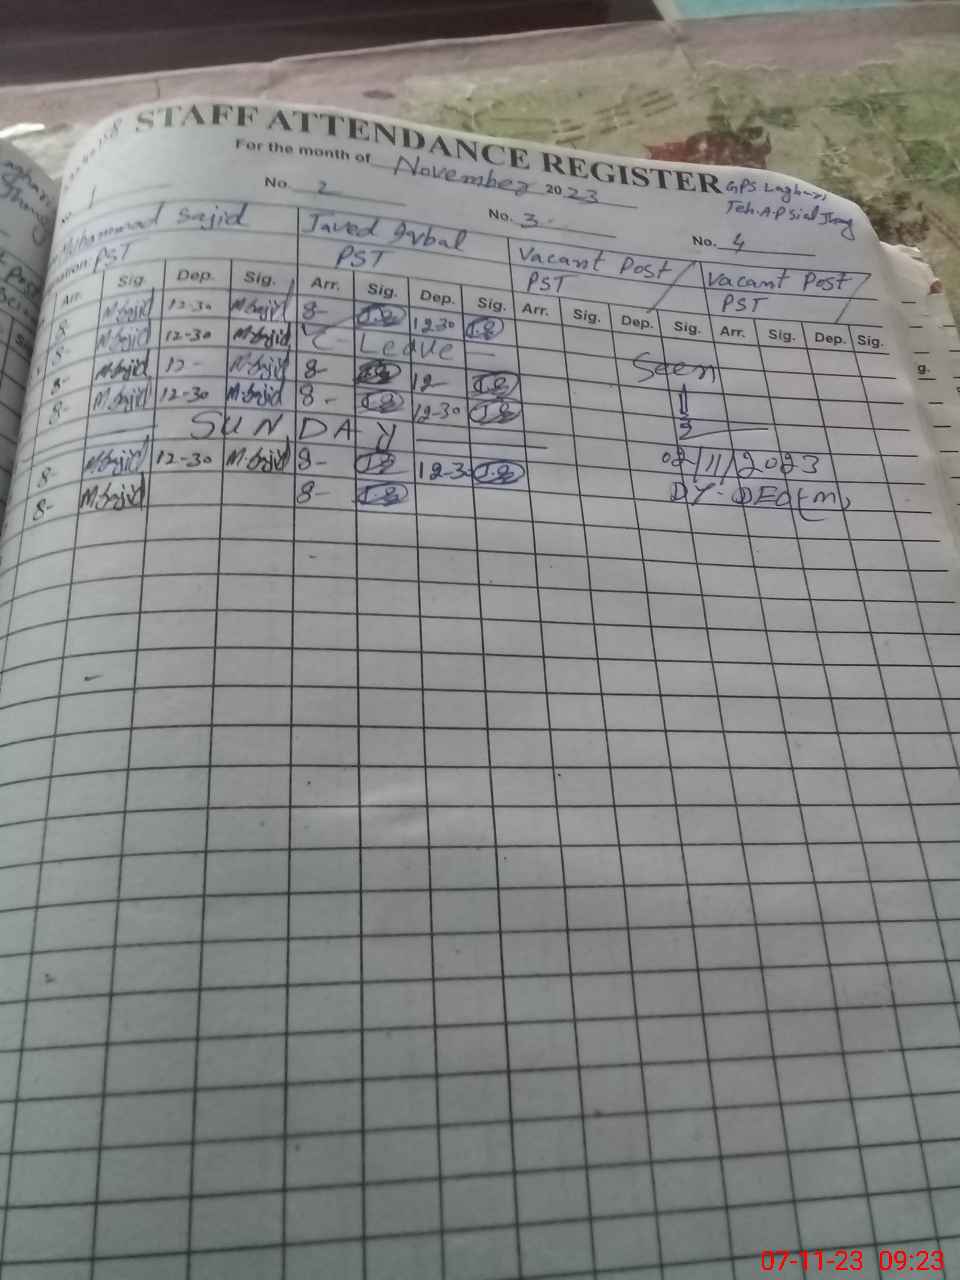 STAFF ATTENDANCE REGISTER
For the month of November 2023
GPS Laghari
Teh. A.P sial Jhang
No. 1 No. 2 No. 3 No. 4
Muhammad Sajid Javed Iqbal Vacant Post Vacant Post
PST PST PST PST
Arr. Sig. Dep. Sig. Arr. Sig. Dep. Sig. Arr. Sig. Dep. Sig. Arr. Sig. Dep. Sig.
8- M.Sajid 12-30 M.Sajid 8- 12-30
8- M.Sajid 12-30 M.Sajid C- Leave Seen
8- M.Sajid 12- M.Sajid 8- 12-
8- M.Sajid 12-30 M.Sajid 8- 12-30
SUNDAY
8- M.Sajid 12-30 M.Sajid 8- 12-30 02/11/2023
8- M.Sajid 8- DY. DEO(M)
07-11-23 09:23